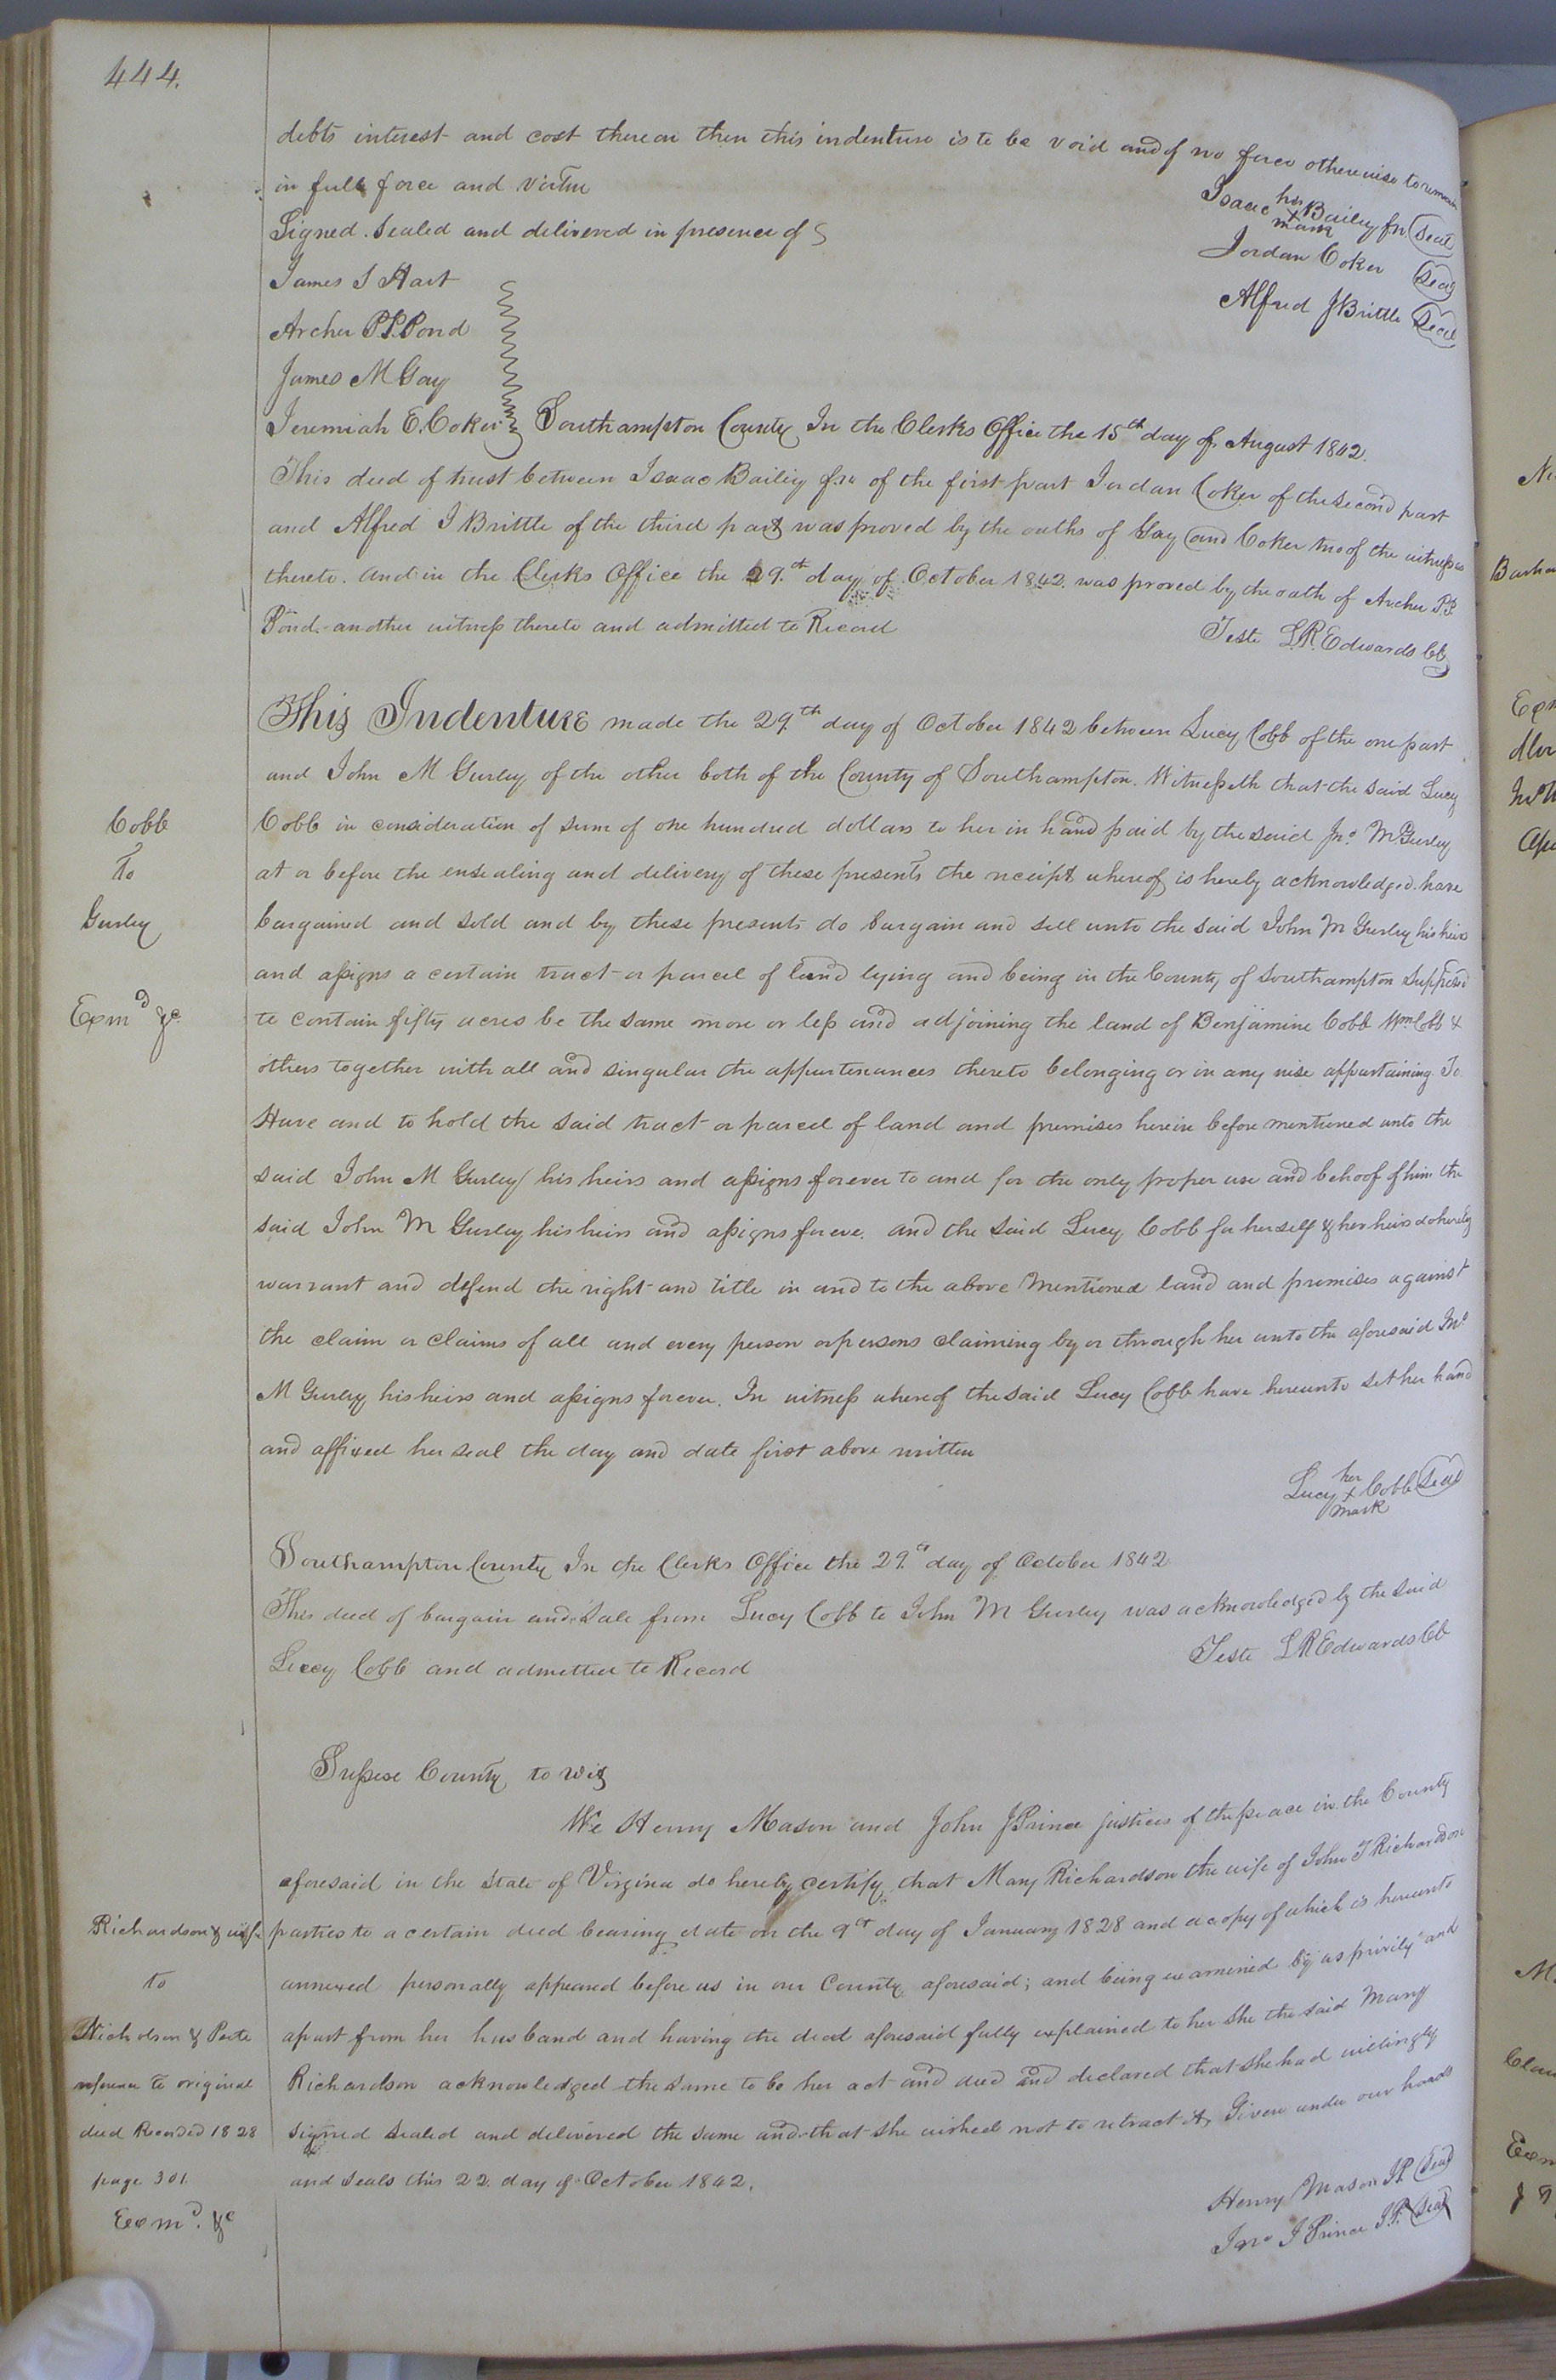 444.
debts interest and cost thereon then this indenture is to be void and of no force otherwise to remain
in full force and virtue
Signed. Sealed and delivered in presence of
Isaac his x mark Bailey Jnr Seal
Jordan Coker Seal
Alfred J Brittle Seal
James S Hart
Archer P.P. Pond
James M Gay
Jeremiah E. Coker
Southampton County In the Clerks Office the 15th day of August 1842.
This deed of trust between Isaac Bailey of the first part Jordan Coker of the second part
and Alfred J Brittle of the third part was proved by the oaths of Gay and Coker two of the witnesses
thereto. And in the Clerks Office the 29th day of October 1842. was proved by the oath of Archer P.P.
Pond another witness thereto and admitted to Record
Teste L.R. Edwards Cl
This Indenture made the 29th day of October 1842 between Lucy Cobb of the one part
and John M Gurley of the other both of the County of Southampton. Witnesseth that the said Lucy
Cobb
To
Gurley
Exmd &c
Cobb in consideration of sum of one hundred dollars to her in hand paid by the said Jno M Gurley
at or before the ensealing and delivery of these presents the receipt whereof is hereby acknowledged. have
bargained and sold and by these presents do bargain and sell unto the said John M Gurley his heirs
and assigns a certain tract or parcel of land lying and being in the County of Southampton Supposed
to contain fifty acres be the same more or less and adjoining the land of Benjamine Cobb Wm Cobb &
others together with all and singular the appurtenances thereto belonging or in any wise appurtaining. To
Have and to hold the said tract or parcel of land and premises herein before mentioned unto the
said John M Gurley his heirs and assigns forever to and for the only proper use and behoof of him the
said John M Gurley his heirs and assigns foreve. and the said Lucy Cobb for herself & her heirs do hereby
warrant and defend the right and title in and to the above mentioned land and premises against
the claim or claims of all and every person or persons claiming by or through her unto the aforesaid Jno
M Gurley his heirs and assigns forever. In witness whereof the said Lucy Cobb have hereunto set her hand
and affixed her seal the day and date first above written
Lucy her x mark Cobb Seal
Southampton County In the Clerks Office the 29th day of October 1842
This deed of bargain and Sale from Lucy Cobb to John M Gurley was acknowledged by the said
Lucy Cobb and admitted to Record
Teste L R Edwards Cl
Sussex County to wit
We Henry Mason and John J Prince justices of the peace in the County
aforesaid in the State of Virginia do hereby certify that Mary Richardson the wife of John T Richardson
Richardson & wife
to
Nicholson & Peete
reference to original
deed Recorded 1828
page 301.
Exmd. &c
parties to a certain deed bearing date on the 9th day of January 1828 and a copy of which is hereunto
annexed personally appeared before us in our County aforesaid; and being examined by us privily and
apart from her husband and having the deed aforesaid fully explained to her she the said Mary
Richardson acknowledged the same to be her act and deed and declared that she had willingly
signed sealed and delivered the same and that she wished not to retract it. Given under our hands
and Seals this 22. day of October 1842.
Henry Mason JP Seal
Jno J Prince J.P. Seal